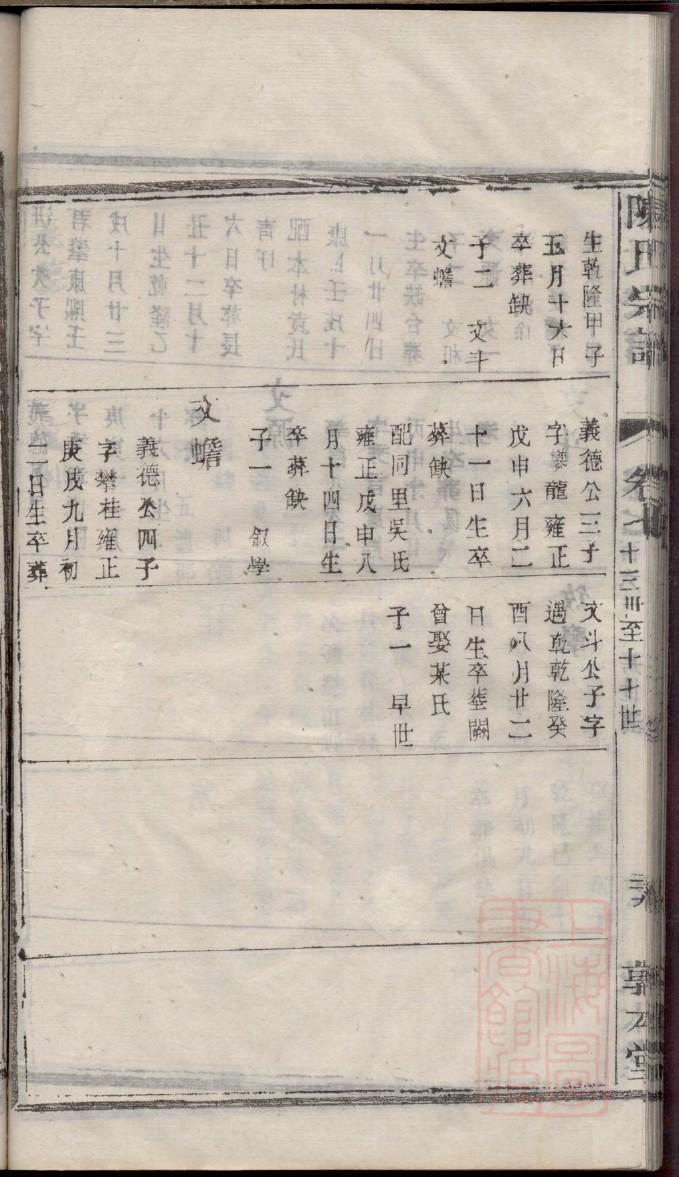 陳氏宗譜
卷七
十三世至十七世
敦本堂
生乾隆甲子
五月十六日
卒葬缺
子二　文斗
文蟾
義德公三子
字攀龍雍正
戊申六月二
十一日生卒
葬缺
配同里吳氏
雍正戊申八
月十四日生
卒葬缺
子一　叙學
文蟾
義德公四子
字攀桂雍正
庚戌九月初
一日生卒葬
文斗公子字
遇乾乾隆癸
酉八月廿二
日生卒塟闕
曾娶某氏
子一　早世